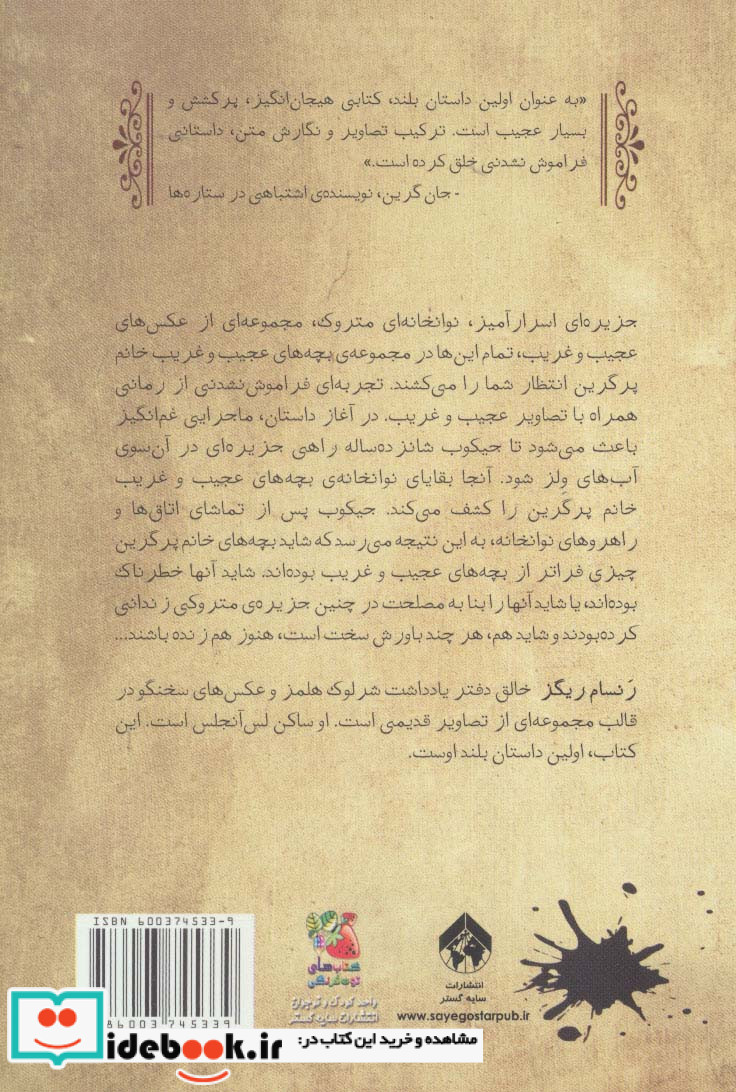 «به عنوان اولین داستان بلند، کتابی هیجان‌انگیز، پرکشش و
بسیار عجیب است. ترکیب تصاویر و نگارش متن، داستانی
فراموش نشدنی خلق کرده است.»
- جان گرین، نویسنده‌ی اشتباهی در ستاره‌ها
جزیره‌ای اسرارآمیز، نوانخانه‌ای متروک، مجموعه‌ای از عکس‌های
عجیب و غریب، تمام این‌ها در مجموعه‌ی بچه‌های عجیب و غریب خانم
پرگرین انتظار شما را می‌کشند. تجربه‌ای فراموش‌نشدنی از رمانی
همراه با تصاویر عجیب و غریب. در آغاز داستان، ماجرایی غم‌انگیز
باعث می‌شود تا جیکوب شانزده‌ساله راهی جزیره‌ای در آن‌سوی
آب‌های وِلز شود. آنجا بقایای نوانخانه‌ی بچه‌های عجیب و غریب
خانم پرگرین را کشف می‌کند. جیکوب پس از تماشای اتاق‌ها و
راهروهای نوانخانه، به این نتیجه می‌رسد که شاید بچه‌های خانم پرگرین
چیزی فراتر از بچه‌های عجیب و غریب بوده‌اند. شاید آنها خطرناک
بوده‌اند، یا شاید آنها را بنا به مصلحت در چنین جزیره‌ی متروکی زندانی
کرده‌بودند و شاید هم، هر چند باورش سخت است، هنوز هم زنده باشند...
رَنسام ریگز خالق دفتر یادداشت شرلوک هلمز و عکس‌های سخنگو در
قالب مجموعه‌ای از تصاویر قدیمی است. او ساکن لس‌آنجلس است. این
کتاب، اولین داستان بلند اوست.
ISBN 600374533-9
86003 745339
کتاب‌های
توت‌فرنگی
واحد کودک و نوجوان
انتشارات سایه گستر
انتشارات
سایه گستر
www.sayegostarpub.ir
مشاهده و خرید این کتاب در:
idebook.ir